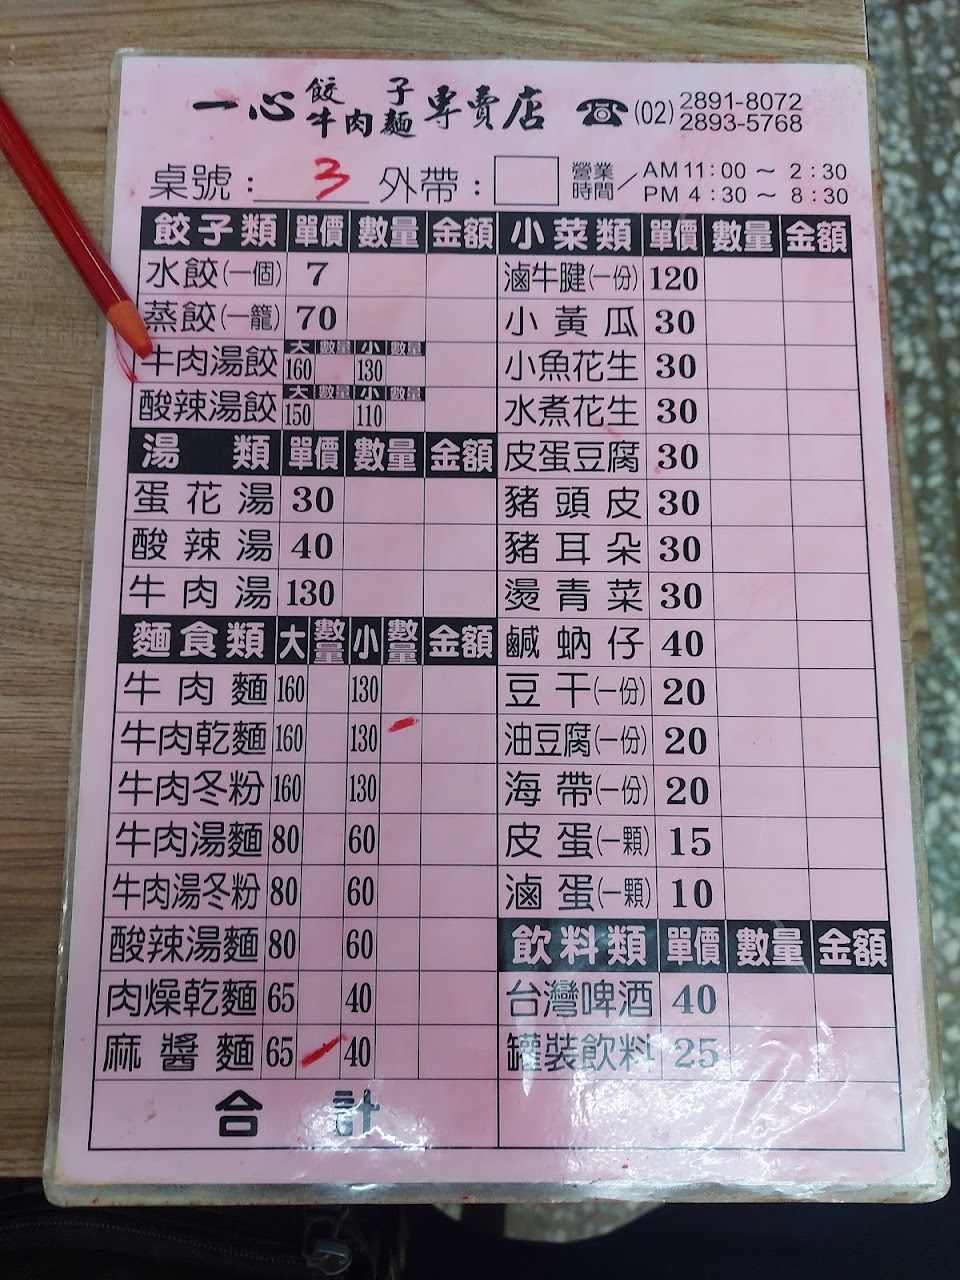 一心餃子牛肉麵專賣店 ☎(02)2891-8072 2893-5768
桌號:3 外帶: 營業時間/AM 11:00～2:30 PM 4:30～8:30
餃子類 單價 數量 金額
水餃(一個) 7
蒸餃(一籠) 70
牛肉湯餃 大 160 數量 小 130 數量
酸辣湯餃 大 150 數量 小 110 數量
湯類 單價 數量 金額
蛋花湯 30
酸辣湯 40
牛肉湯 130
麵食類 大 數量 小 數量 金額
牛肉麵 160 130
牛肉乾麵 160 130
牛肉冬粉 160 130
牛肉湯麵 80 60
牛肉湯冬粉 80 60
酸辣湯麵 80 60
肉燥乾麵 65 40
麻醬麵 65 40
合計
小菜類 單價 數量 金額
滷牛腱(一份) 120
小黃瓜 30
小魚花生 30
水煮花生 30
皮蛋豆腐 30
豬頭皮 30
豬耳朵 30
燙青菜 30
鹹蚋仔 40
豆干(一份) 20
油豆腐(一份) 20
海帶(一份) 20
皮蛋(一顆) 15
滷蛋(一顆) 10
飲料類 單價 數量 金額
台灣啤酒 40
罐裝飲料 25